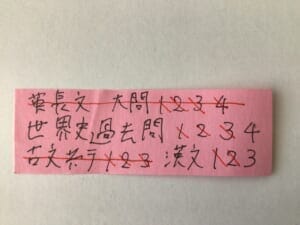 英長文 大問 1 2 3 4
世界史過去問 1 2 3 4
古文 1 2 3 漢文 1 2 3